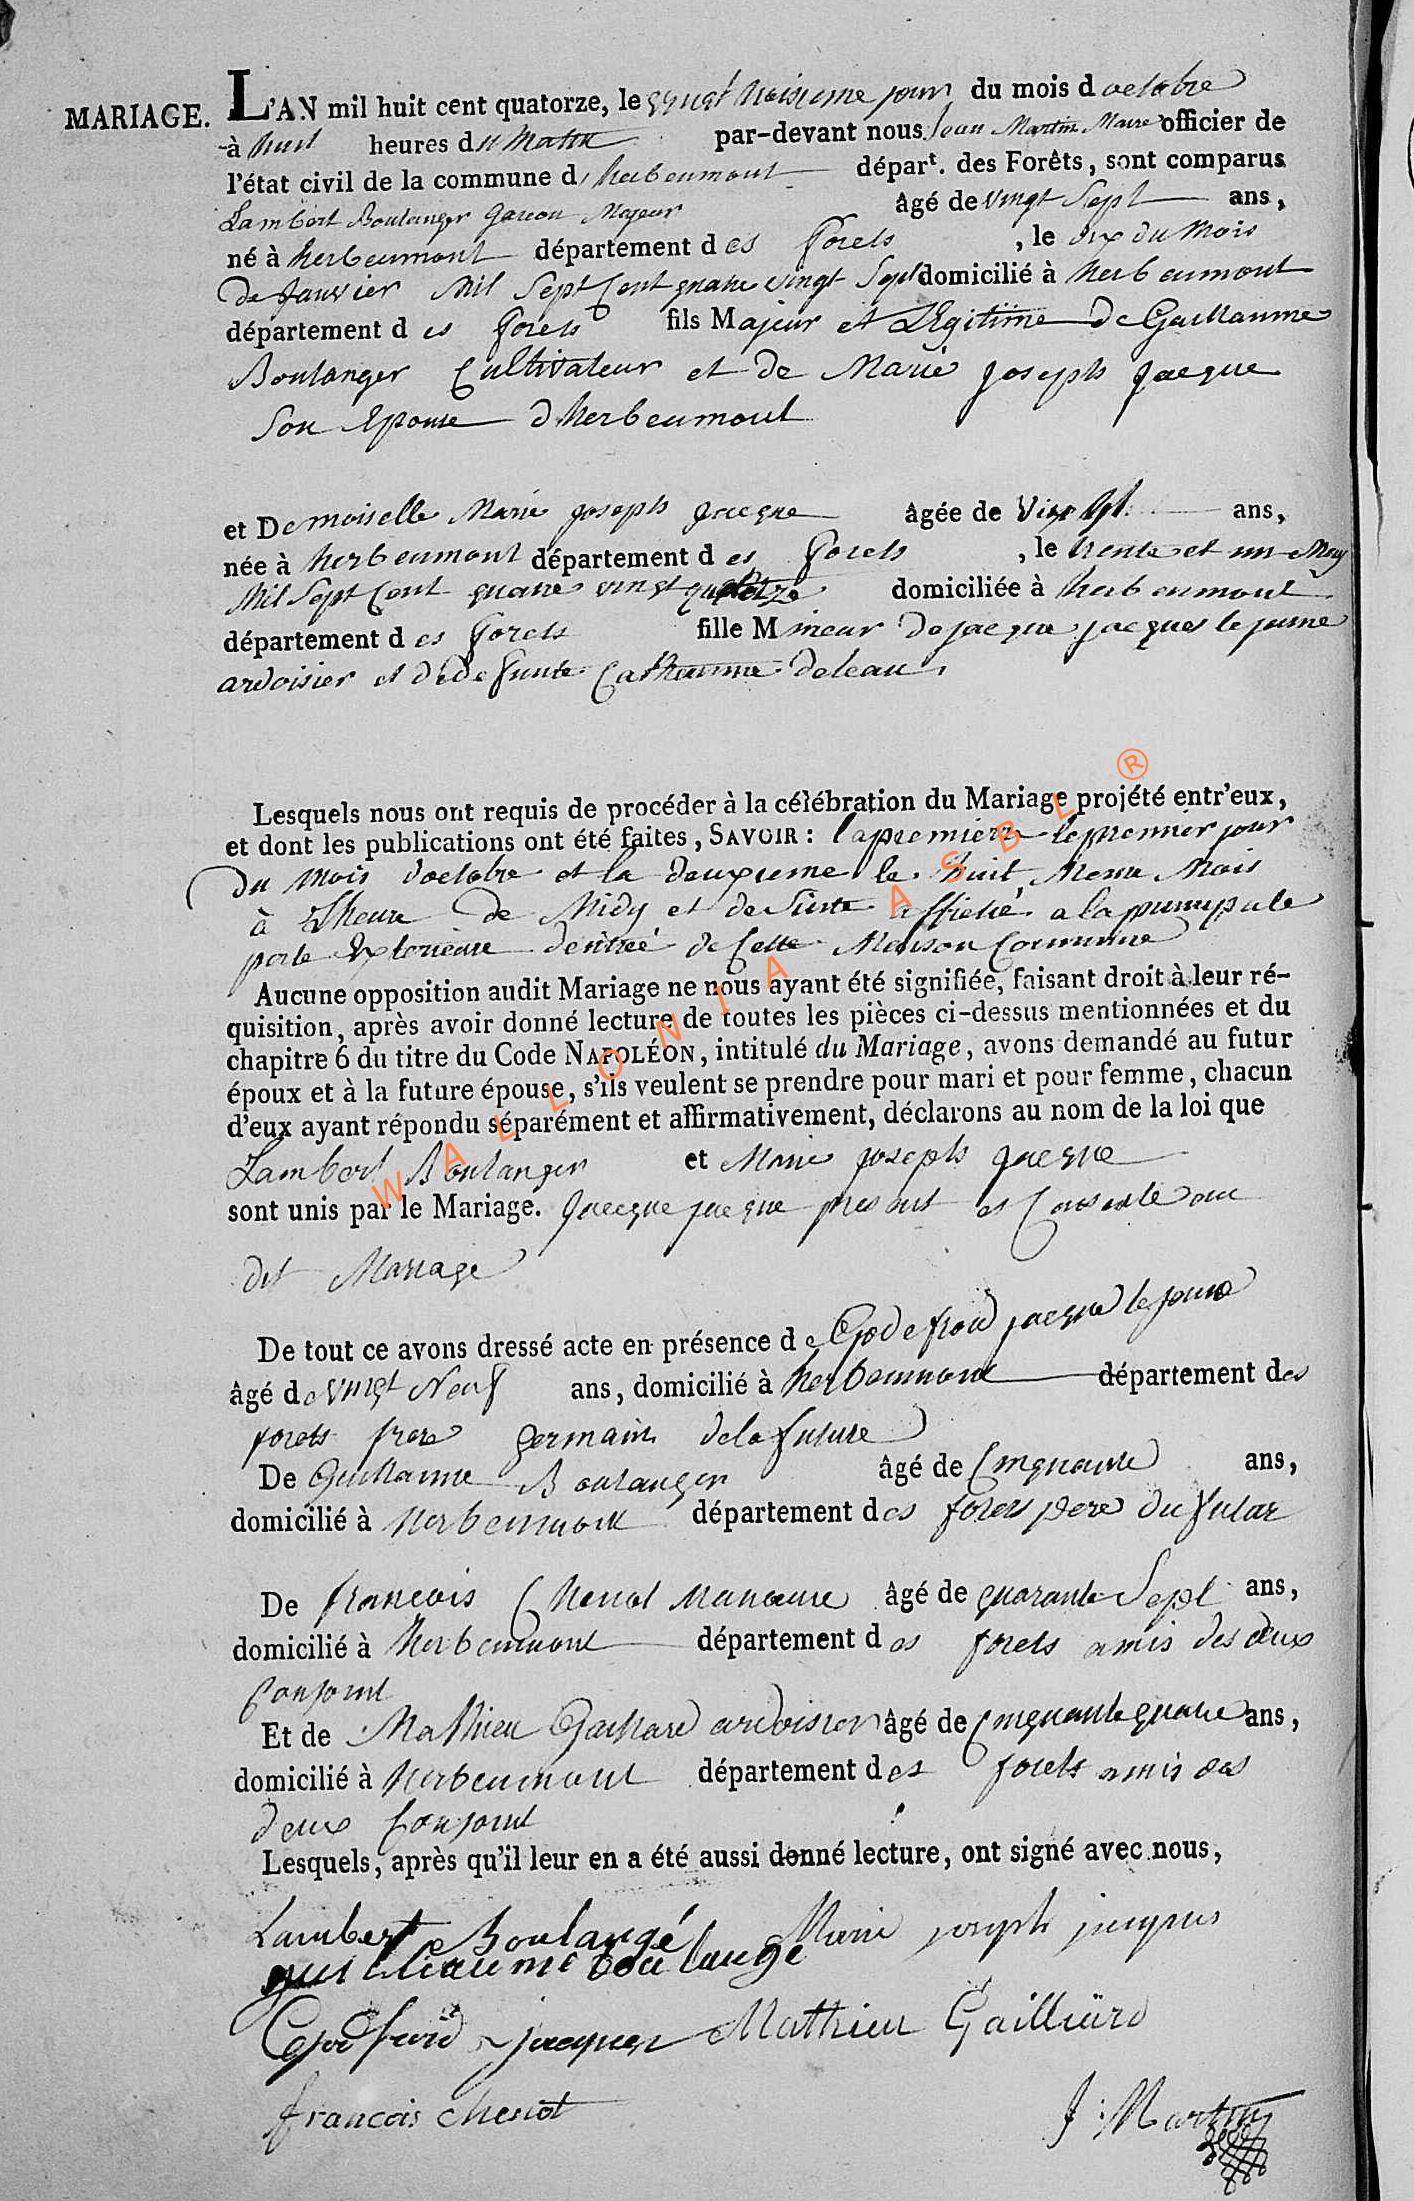 MARIAGE. L'AN mil huit cent quatorze, le vingt troisieme jour du mois d octobre
à huit heures du Matin par-devant nous Jean Martin Maire officier de
l'état civil de la commune d'herbeumont départ. des Forêts, sont comparus
Lambert Boulanger Garcon Majeur âgé de vingt Sept ans,
né à herbeumont département des forets, le dix du Mois
De Janvier Mil Sept Cent quatre vingt Sept domicilié à herbeumont
département des forets fils Majeur et LEgitime de Guillaume
Boulanger Cultivateur et de Marie joseph jacque
Son Epouse d'herbeumont
et Demoiselle Marie joseph jacque âgée de Vingt ans,
née à herbeumont département des forets, le trente et un May
Mil Sept Cent quatre vingt quatorze domiciliée à herbeumont
département des forets fille Mineur de jacque jacques le jeune
ardoisier et de defunte Catherinne deleau
Lesquels nous ont requis de procéder à la célébration du Mariage projété entr'eux,
et dont les publications ont été faites, SAVOIR : la premiere le premier jour
Du Mois d'octobre et la deuxieme le huit Meme Mois
à Lheure de Midy et de Suite affiché a la principale
porte Exterieure d'entrée de Cette Maison Commune
Aucune opposition audit Mariage ne nous ayant été signifiée, faisant droit à leur ré-
quisition, après avoir donné lecture de toutes les pièces ci-dessus mentionnées et du
chapitre 6 du titre du Code NAPOLÉON, intitulé du Mariage, avons demandé au futur
époux et à la future épouse, s'ils veulent se prendre pour mari et pour femme, chacun
d'eux ayant répondu séparément et affirmativement, déclarons au nom de la loi que
Lambert Boulanger et Marie joseph jacque
sont unis par le Mariage. jacque jacque present et Consente au
dit Mariage
De tout ce avons dressé acte en présence de Godefroid jacque le jeune
âgé de vingt Neuf ans, domicilié à herbeumont département des
forets frere germain de la future
De Guillaume Boulanger âgé de Cinquante ans,
domicilié à herbeumont département des forets pere du futur
De francois Chenot âgé de quarante Sept ans,
domicilié à herbeumont département des forets amis des deux
Conjoint
Et de Mathieu Gaillard ardoisier âgé de Cinquante quatre ans,
domicilié à herbeumont département des forets amis des
deux Conjoint
Lesquels, après qu'il leur en a été aussi donné lecture, ont signé avec nous,
Lambert Boulangé Marie joseph jacques
guilliaume boulange
Godefroid jacques Mathieu Gailliard
francois chenot J: Martin
WALLONIA ASBL ®